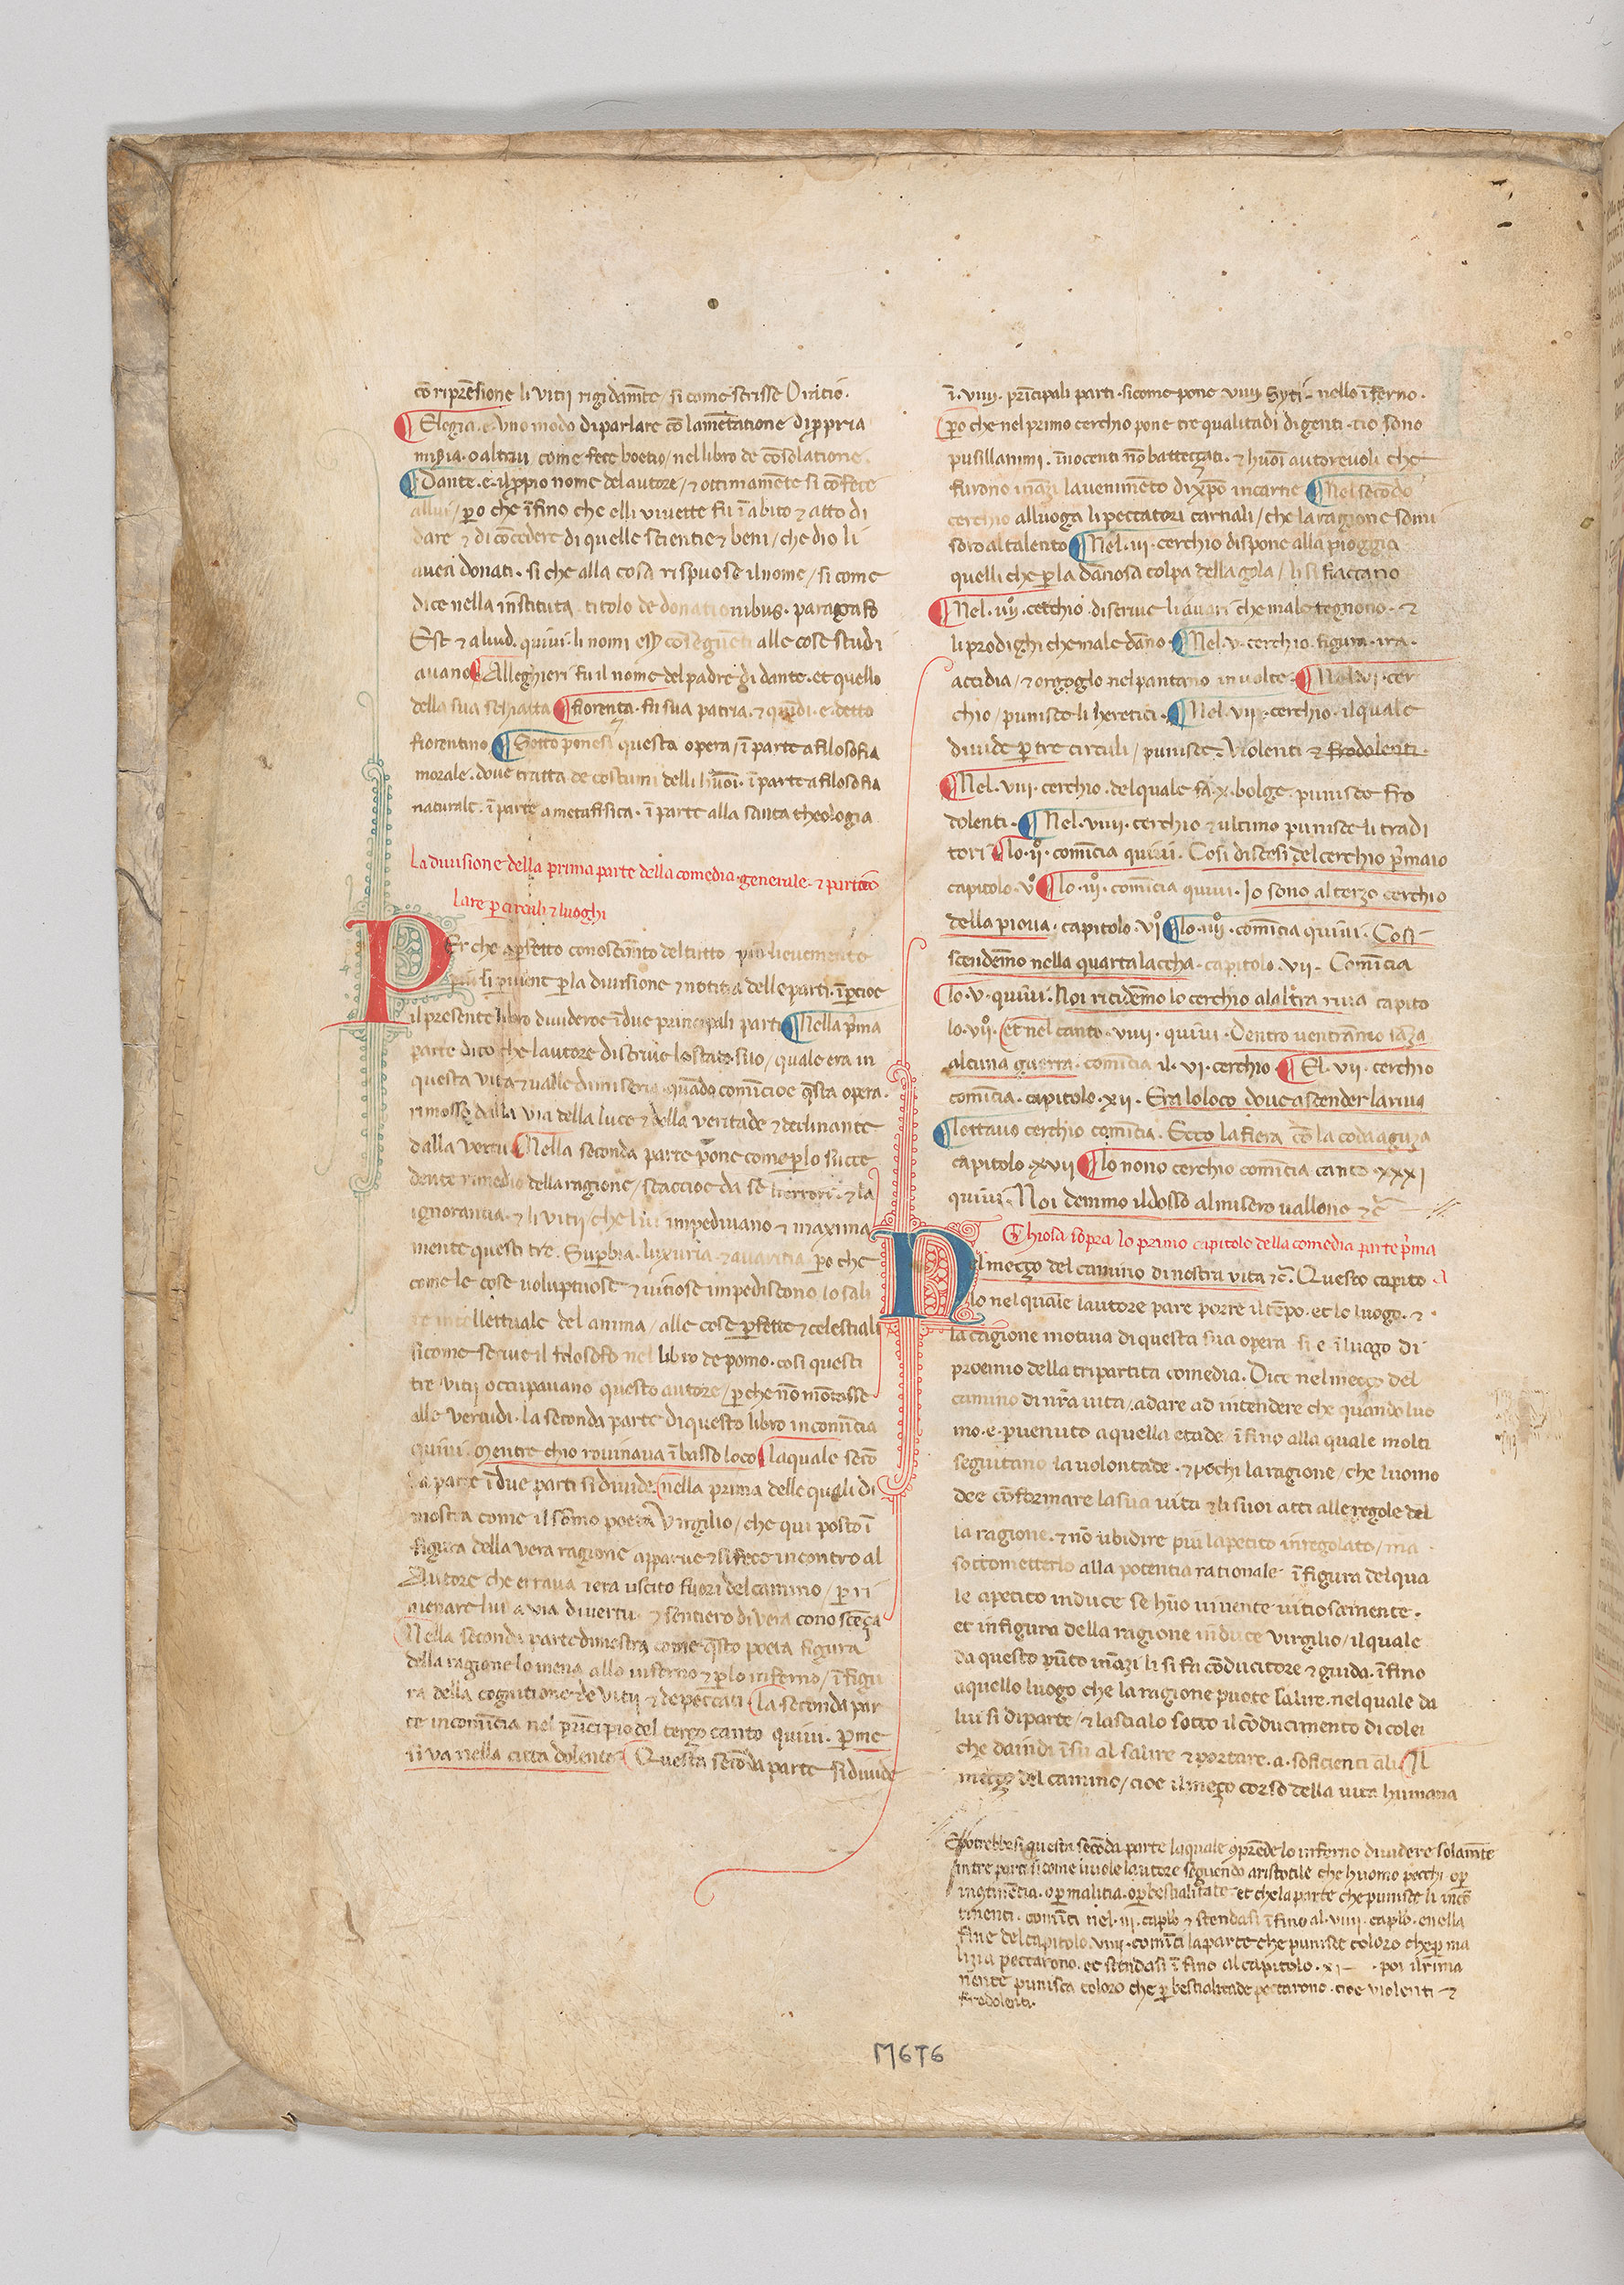 cō riprēsione li vitii rigidam̄te si come scrisse Oratio.
Elegia. e. uno modo di parlare cō lamētatione di ꝓpria
miseria. o altrui come fece boetio / nel libro de cōsolatione.
Dante. e. il ꝓpio nome del autore / ⁊ ottimamēte si cōfece
allui / ꝑo che īfino che elli vivette fu ī abito ⁊ atto di
dare ⁊ di cōcedere di quelle scientie ⁊ beni / che dio li
avea donati. si che alla cosa rispuose il nome / si come
dice nella īnstituta. titolo de donationibus. paragrafo
Est ⁊ aliud. quivi. li nomi essere cōseguēti alle cose studi
avano Alleghieri fu il nome del padre di dante. et quello
della sua schiatta fiorenza. fu sua patria. ⁊ quīdi. e. detto
fiorentino Sotto ponesi questa opera / ī parte a filosofia
morale. dove tratta de costumi delli huoī. ī parte a filosofia
naturale. ī parte a metafisica. ī parte alla santa theologia
La divisione della prima parte della comedia. generale. ⁊ partico
lare ꝑ circuli ⁊ luoghi
Per che a ꝑfetto conoscimēto del tutto piu lievemente
si ꝑviene ꝑ la divisione ⁊ notitia delle parti. īꝑcioe
il presente libro divideroe ī due principali parti Nella p̄ma
parte dico che lautore discrive lo stato suo / quale era in
questa vita ⁊ valle di miseria. quādo comīcioe q̄sta opera.
rimosso dalla via della luce ⁊ della veritade ⁊ declinante
dalla vertu. Nella seconda parte pone come ꝑ lo succe
dente rimedio della ragione / scaccioe da se li errori. ⁊ la
ignorantia. ⁊ li vitii / che lui impedivano ⁊ maxima
mente questi tre. Suꝑbia. luxuria. ⁊ avaritia ꝑo che
come le cose voluptuose ⁊ vitiose impediscono lo sali
re intellettuale del anima / alle cose ꝑfette ⁊ celestiali
si come scrive il filosofo nel libro de pomo. cosi questi
tre vitii occupavano questo autore / ꝑ che nō mōtasse
alle vertudi. la seconda parte di questo libro incomīcia
quivi. Mentre chio rovinava ī basso loco la quale secō
da parte ī due parti si divide. nella prima delle quali di
mostra come il sōmo poeta Virgilio / che qui posto ī
figura della vera ragione apparve ⁊ si fece incontro al
Autore che errava ⁊ era uscito fuori del camino / ꝑ ri
menare lui a via di vertu. ⁊ sentiero di vera conoscēça
Nella seconda parte dimostra come q̄sto poeta figura
della ragione lo mena allo inferno ⁊ ꝑ lo inferno / ī figu
ra della cognitione de vitii ⁊ de peccati La seconda par
te incomīcia nel prīcipio del terço canto quivi. ꝑ me
si va nella citta dolente. Questa secōda parte si divide
ī. viiij. prīcipali parti. si come pone viiij. syti. nello īferno.
ꝑo che nel primo cerchio pone tre qualitadi di genti. cio sono
pusillanimi. īnocenti nō batteççati. ⁊ huoī autorevoli che
furono ināzi lavenimēto di xp̄o in carne Nel secōdo
cerchio alluoga li peccatori carnali / che la ragione somi
sero al talento Nel. iij. cerchio dispone alla pioggia
quelli che ꝑ la dānosa colpa della gola / li si fiaccano
Nel. iiijo. cerchio discrive li avari che male tegnono. ⁊
li prodighi che male dāno. Nel. v. cerchio. figura. ira.
accidia / ⁊ orgoglo nel pantano involte. Nel. vi. cer
chio / punisce li heretici. Nel. vij. cerchio. il quale
divide ꝑ tre circuli / punisce. Violenti ⁊ frodolenti.
Nel. viij. cerchio. del quale fa. x. bolge punisce fro
dolenti. Nel. viiij. cerchio ⁊ ultimo punisce li tradi
tori lo. ijo. comīcia quivi. Cosi discesi del cerchio p̄maio
capitolo. vo lo. iijo. comīcia quivi. Io sono al terzo cerchio
della piova. capitolo. vio lo. iiijo. comīcia quivi. Cosi
scendēmo nella quarta lacca. capitolo. vij. Comīcia
lo. v. quivi. Noi ricidēmo lo cerchio alaltra riva capito
lo. vijo. et nel canto. viiij. quivi. Dentro ventrāmo sāza
alcuna guerra. comīcia il. vi. cerchio. El. vij. cerchio
comīcia. capitolo. xij. Era lo loco dove a scender la riva
lottavo cerchio comīcia. Ecco la fiera cō la coda aguza
capitolo. xvij lo nono cerchio comīcia canto. xxxi
quivi. Noi demmo il dosso al misero vallone ⁊c̄
Chiosa sopra lo primo capitolo della comedia parte p̄ma
Nel meçço del camino di nostra vita ⁊c̄. Questo capito
lo nel quale lautore pare porre il tēpo. et lo luogo. ⁊.
la cagione motiva di questa sua opera si e ī luogo di
proemio della tripartita comedia. Dice nel meçço del
camino di nr̄a vita / a dare ad intendere che quando luo
mo. e. ꝑvenuto a quella etade / īfino alla quale molti
seguitano la volontade. ⁊ pochi la ragione / che luomo
dee cōformare la sua vita ⁊ li suoi atti alle regole del
la ragione. ⁊ nō ubidire piu lapetito inregolato / ma
sottometterlo alla potentia rationale. ī figura del qua
le apetito induce se huō vivente vitiosamente.
et in figura della ragione induce Virgilio / il quale
da questo pūto ināzi li si fa cōducitore ⁊ guida. īfino
a quello luogo che la ragione puote salire. nel quale da
lui si diparte / ⁊ lascialo sotto il cōducimento di colei
che da indi ī su al salire ⁊ portare. a. soficienti ali. Il
meçço del camino / cioe il meçço corso della vita humana
E potrebbesi questa secōda parte la quale cōprēde lo inferno dividere solamēte
in tre parti si come vuole lautore seguendo aristotile che huomo pecchi. o ꝑ
incōtinētia. o ꝑ malitia. o ꝑ bestialitate. et che la parte che punisce li incō
tinenti. comīci nel. iij. caplo ⁊ stendasi īfino al. viiij. caplo. e nella
fine del capitolo. viiij. comīci la parte che punisce coloro che ꝑ ma
litia peccarono. et stendasi īfino al capitolo. xi — . poi il rima
nente punisca coloro che ꝑ bestialitade peccarono. cioe violenti ⁊
frodolenti.
M676